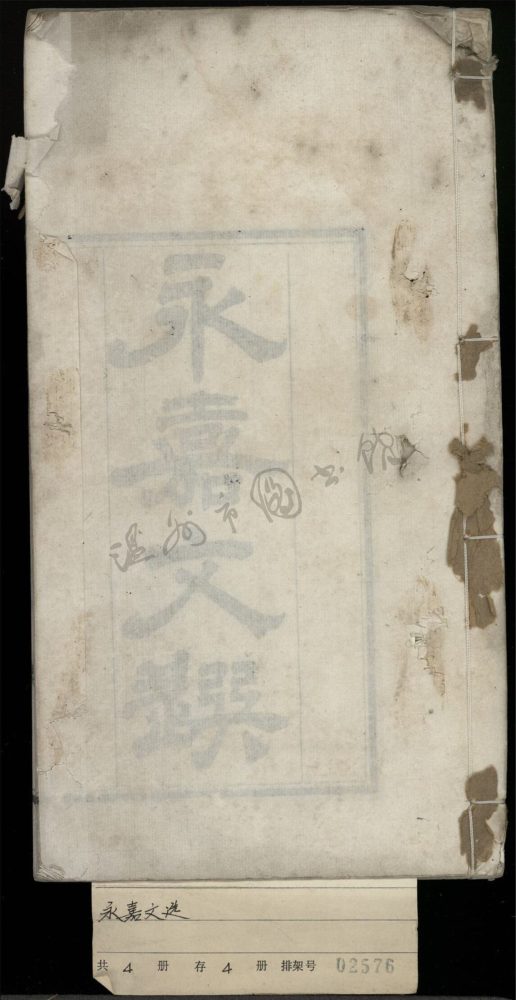 永嘉文選
温州市图书馆
永嘉文选
共 4 册 存 4 册 排架号 02576